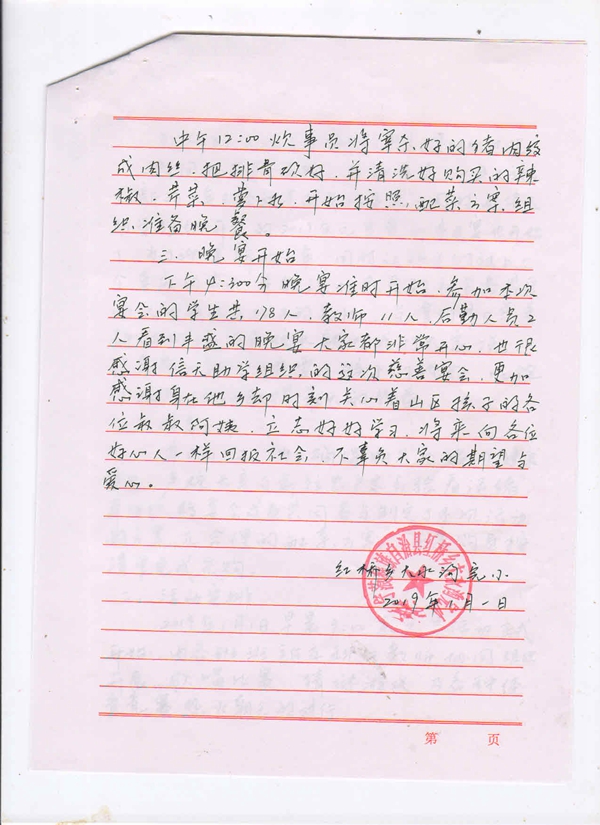 中午12:00炊事员将宰杀好的猪肉绞
成肉丝.把排骨砍好.并清洗好购买的辣
椒.芹菜.萝卜扎.开始按照配菜方案.组
织准备晚餐。
三.晚宴开始
下午4:300分晚宴准时开始.参加本次
宴会的学生共178人.教师11人.后勤人员2
人看到丰盛的晚宴大家都非常开心.也很
感谢信天助学组织的这次慈善宴会.更加
感谢身在他乡却时刻关心着山区孩子的各
位叔叔阿姨.立志好好学习.将来向各位
好心人一样回报社会.不辜负大家的期望与
爱心。
红桥乡大水沟完小
2019年1月1日
自治县红桥乡
第 页